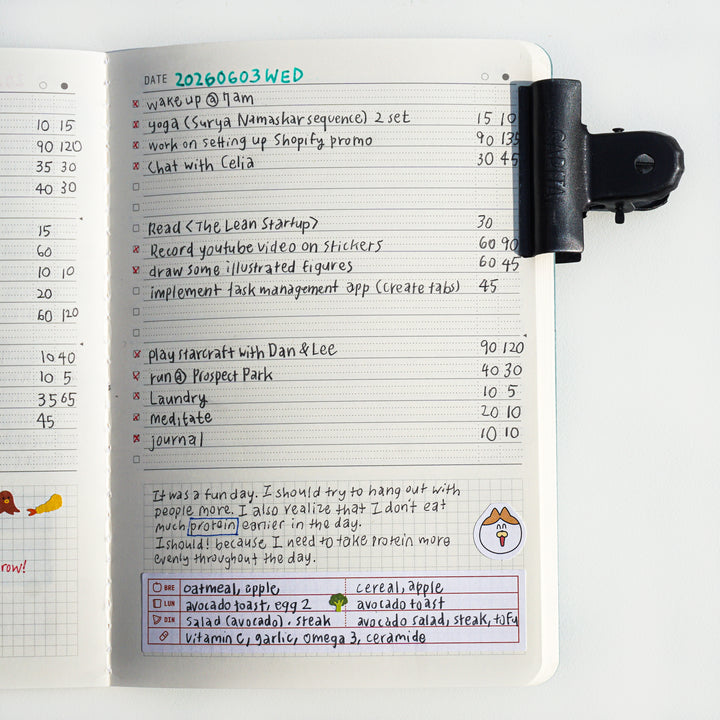 DATE 20260603 WED
wake up @ 7am
yoga (Surya Namaskar sequence) 2 set 15 10
work on setting up Shopify promo 90 135
Chat with Celia 30 45
Read <The Lean Startup> 30
Record youtube video on stickers 60 90
draw some illustrated figures 60 45
implement task management app (create tabs) 45
play starcraft with Dan & Lee 90 120
run @ Prospect Park 40 30
Laundry 10 5
meditate 20 10
journal 10 10
It was a fun day. I should try to hang out with
people more. I also realize that I don't eat
much protein earlier in the day.
I should! because I need to take protein more
evenly throughout the day.
BRE oatmeal, apple cereal, apple
LUN avocado toast, egg 2 avocado toast
DIN salad (avocado). steak avocado salad, steak, tofu
vitamin C, garlic, omega 3, ceramide
10 15
90 120
35 30
40 30
15
60
10 10
20
60 120
10 40
10 5
35 65
45
row!